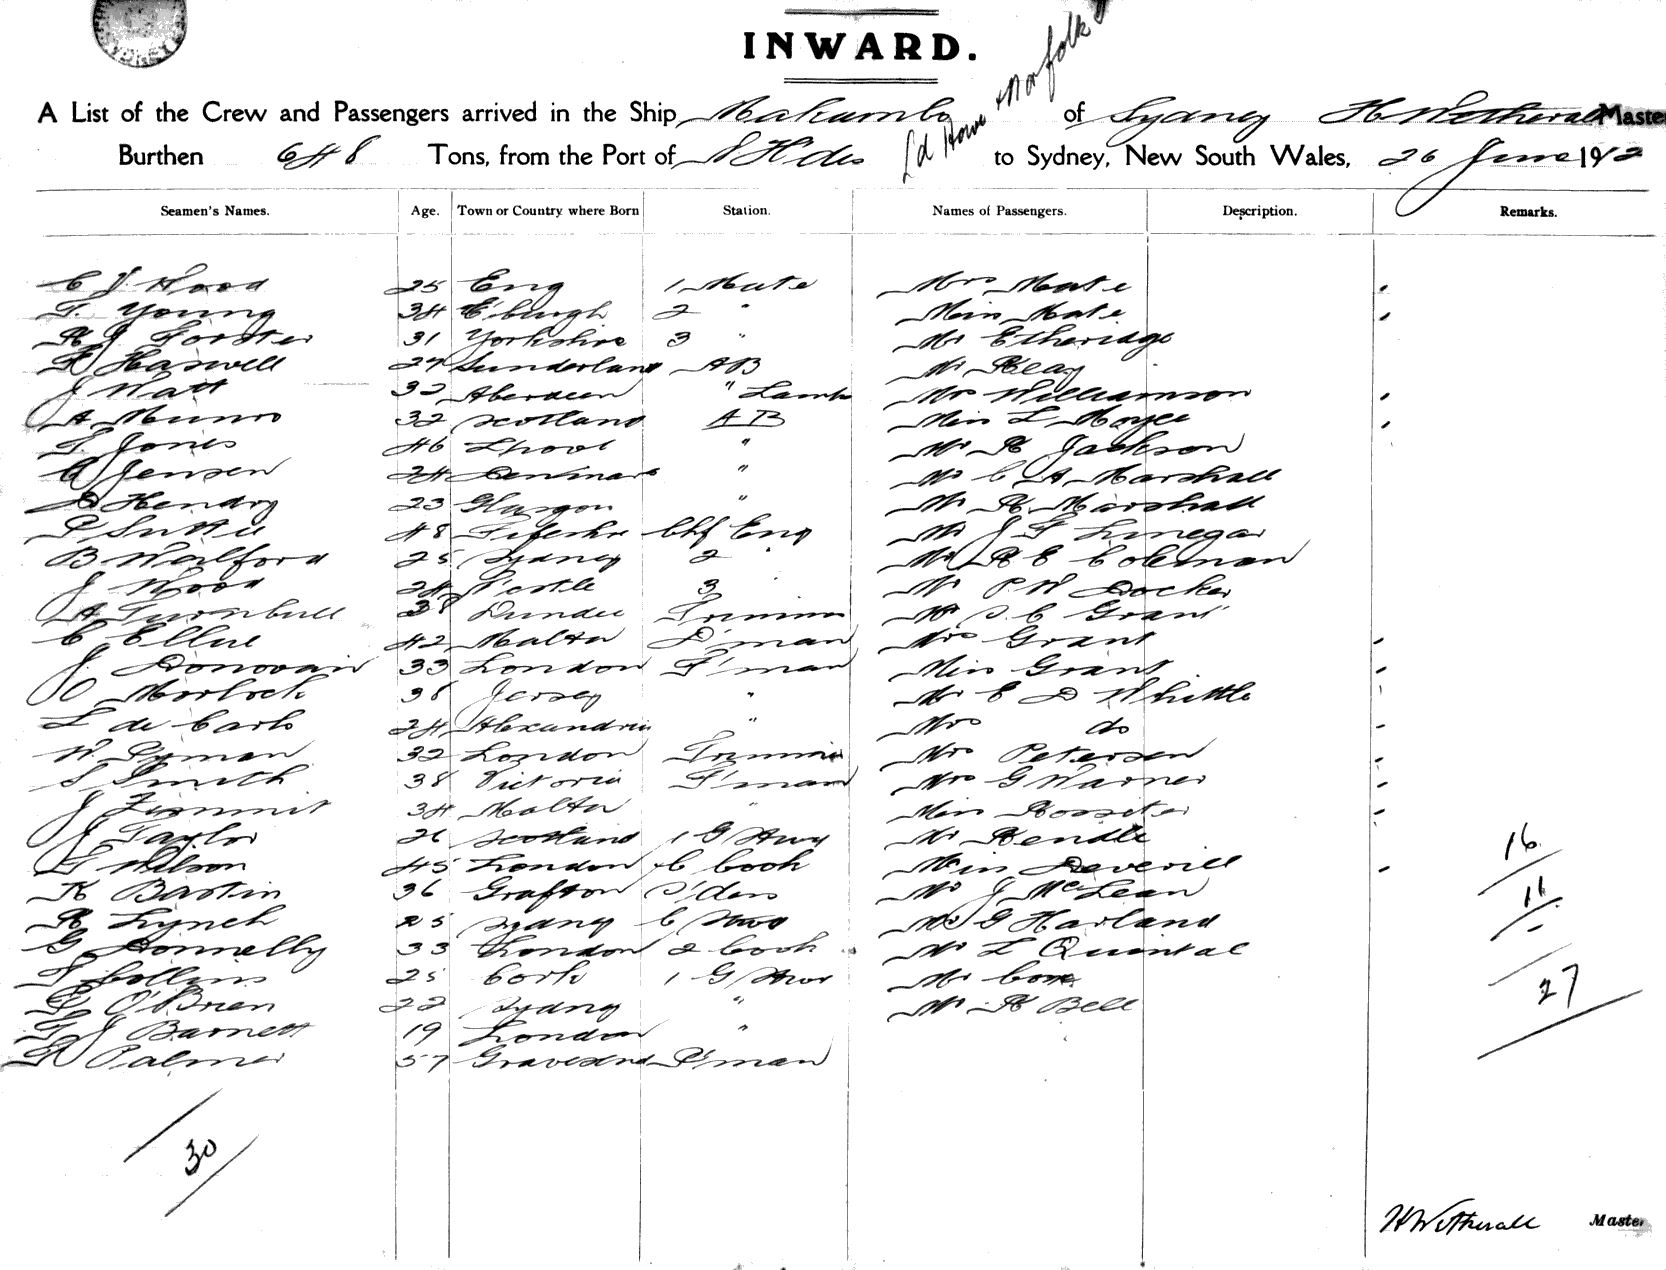 INWARD.
Ld Howe & Norfolk I
A List of the Crew and Passengers arrived in the Ship Makambo of Sydney H Wetherall Master
Burthen 648 Tons, from the Port of N Hdes to Sydney, New South Wales, 26 June 1912
Seamen's Names. Age. Town or Country where Born Station. Names of Passengers. Description. Remarks.
C J Hood 25 Eng 1 Mate Mrs Mate
T. Young 34 E'burgh 2 " Miss Mate
R J Forster 31 Yorkshire 3 " Mr Etheridge
F Haswell 27 Sunderland AB Mr Reay
J Watt 32 Aberdeen " Lamps Mrs Williamson
A Munro 32 Scotland AB Miss L Moyle
T. Jones 46 L'pool " Mr R Jackson
C Jensen 24 Denmark " Mr C A Marshall
D Hendry 23 Glasgow " Mr R Marshall
P Suttie 48 Fifeshr Chf Eng Mr J F Finegar
B Walford 25 Sydney 2 " Mr R E Coleman
J Wood 24 N'castle 3 " Mr P W Docker
A Turnbull 38 Dundee Trimmer Mr S C Grant
C Ellul 42 Malta D'man Mrs Grant
J. Donovan 33 London F'man Miss Grant
O Morlock 38 Jersey " Mr E D Whittle
L de Carlo 24 Alexandria " Mrs do
W Lyman 32 London Trimmer Mrs Petersen
S Smith 38 Victoria F'man Mrs G Warner
J Zammit 34 Malta " Miss Rosseter
J Taylor 26 Scotland 1 G Stwd Mr Rendle 16
T Wilson 45 London C Cook Miss Deverill
R Bastin 36 Grafton S'dess Mr J McLean 11
R Lynch 25 Sydney C Stwd Mr G Harland
G Donnelly 33 London 2 Cook Mr L Quintal
T Collins 25 Cork 1 G Stwd Mr Cox 27
G O'Brien 22 Sydney " Mr R Bell
T J Barnett 19 London "
R Palmer 57 Gravesend P'man
30
H Wetherall Master